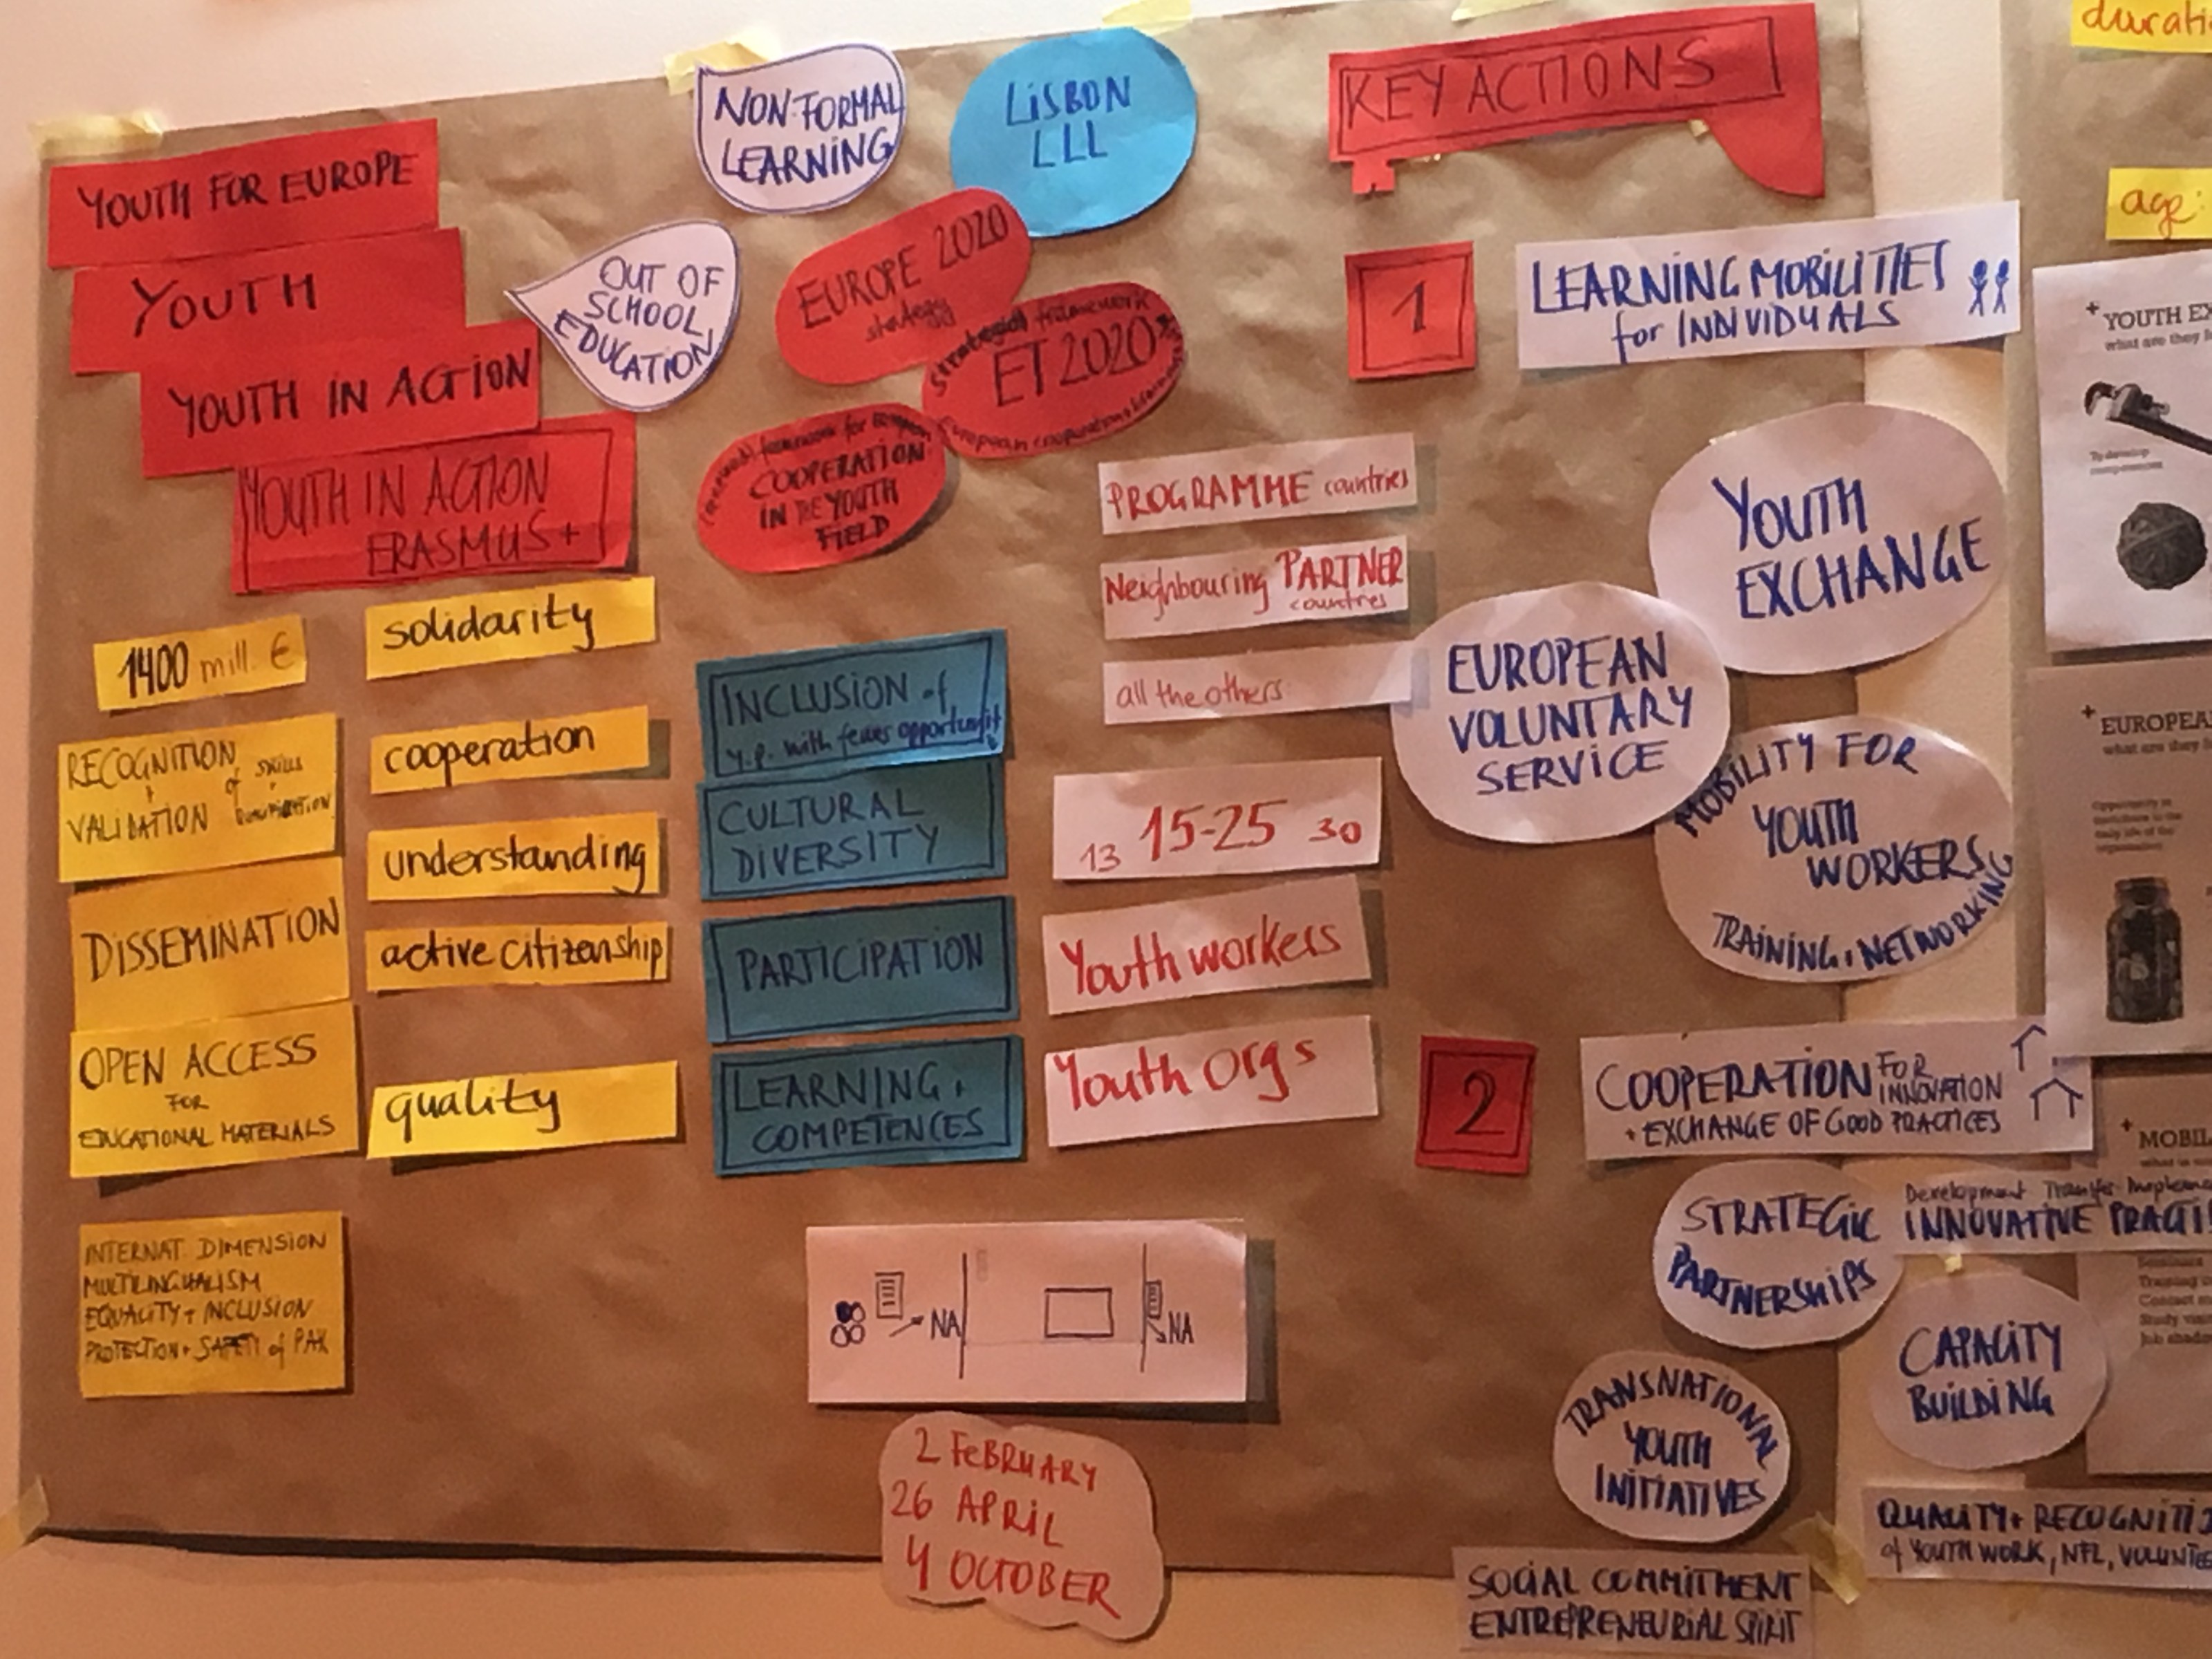 YOUTH FOR EUROPE
YOUTH
YOUTH IN ACTION
YOUTH IN ACTION
ERASMUS+
NON-FORMAL
LEARNING
OUT OF
SCHOOL
EDUCATION
LISBON
LLL
EUROPE 2020
strategy
strategic framework
ET 2020
European cooperation
framework for
COOPERATION
IN THE YOUTH
FIELD
1400 mill. €
RECOGNITION
+
VALIDATION
of skills
+
DISSEMINATION
OPEN ACCESS
FOR
EDUCATIONAL MATERIALS
INTERNAT. DIMENSION
MULTILINGUALISM
EQUALITY + INCLUSION
PROTECTION + SAFETY of PAX
solidarity
cooperation
understanding
active citizenship
quality
INCLUSION of
y.p. with fewer opportunit
CULTURAL
DIVERSITY
PARTICIPATION
LEARNING +
COMPETENCES
PROGRAMME countries
Neighbouring PARTNER
countries
all the others
13 15-25 30
Youth workers
Youth Orgs
NA
NA
2 FEBRUARY
26 APRIL
4 OCTOBER
KEY ACTIONS
1
LEARNING MOBILITIES
for INDIVIDUALS
YOUTH
EXCHANGE
EUROPEAN
VOLUNTARY
SERVICE
MOBILITY FOR
YOUTH
WORKERS
TRAINING + NETWORKING
2
COOPERATION FOR
INNOVATION
+ EXCHANGE OF GOOD PRACTICES
STRATEGIC
PARTNERSHIPS
Development Transfer Impleme
INNOVATIVE PRACTI
CAPACITY
BUILDING
TRANSNATIONAL
YOUTH
INITIATIVES
SOCIAL COMMITMENT
ENTREPRENEURIAL SPIRIT
QUALITY + RECOGNITI
of YOUTH WORK, NFL, VOLUNTEE
durati
age:
+ YOUTH EX
what are they
To develop
competences
+ EUROPEA
what are they
Opportunity to
contribute to the
daily life of the
organisation
+ MOBIL
what is
Seminars
Training
Contact
Study visi
Job shado